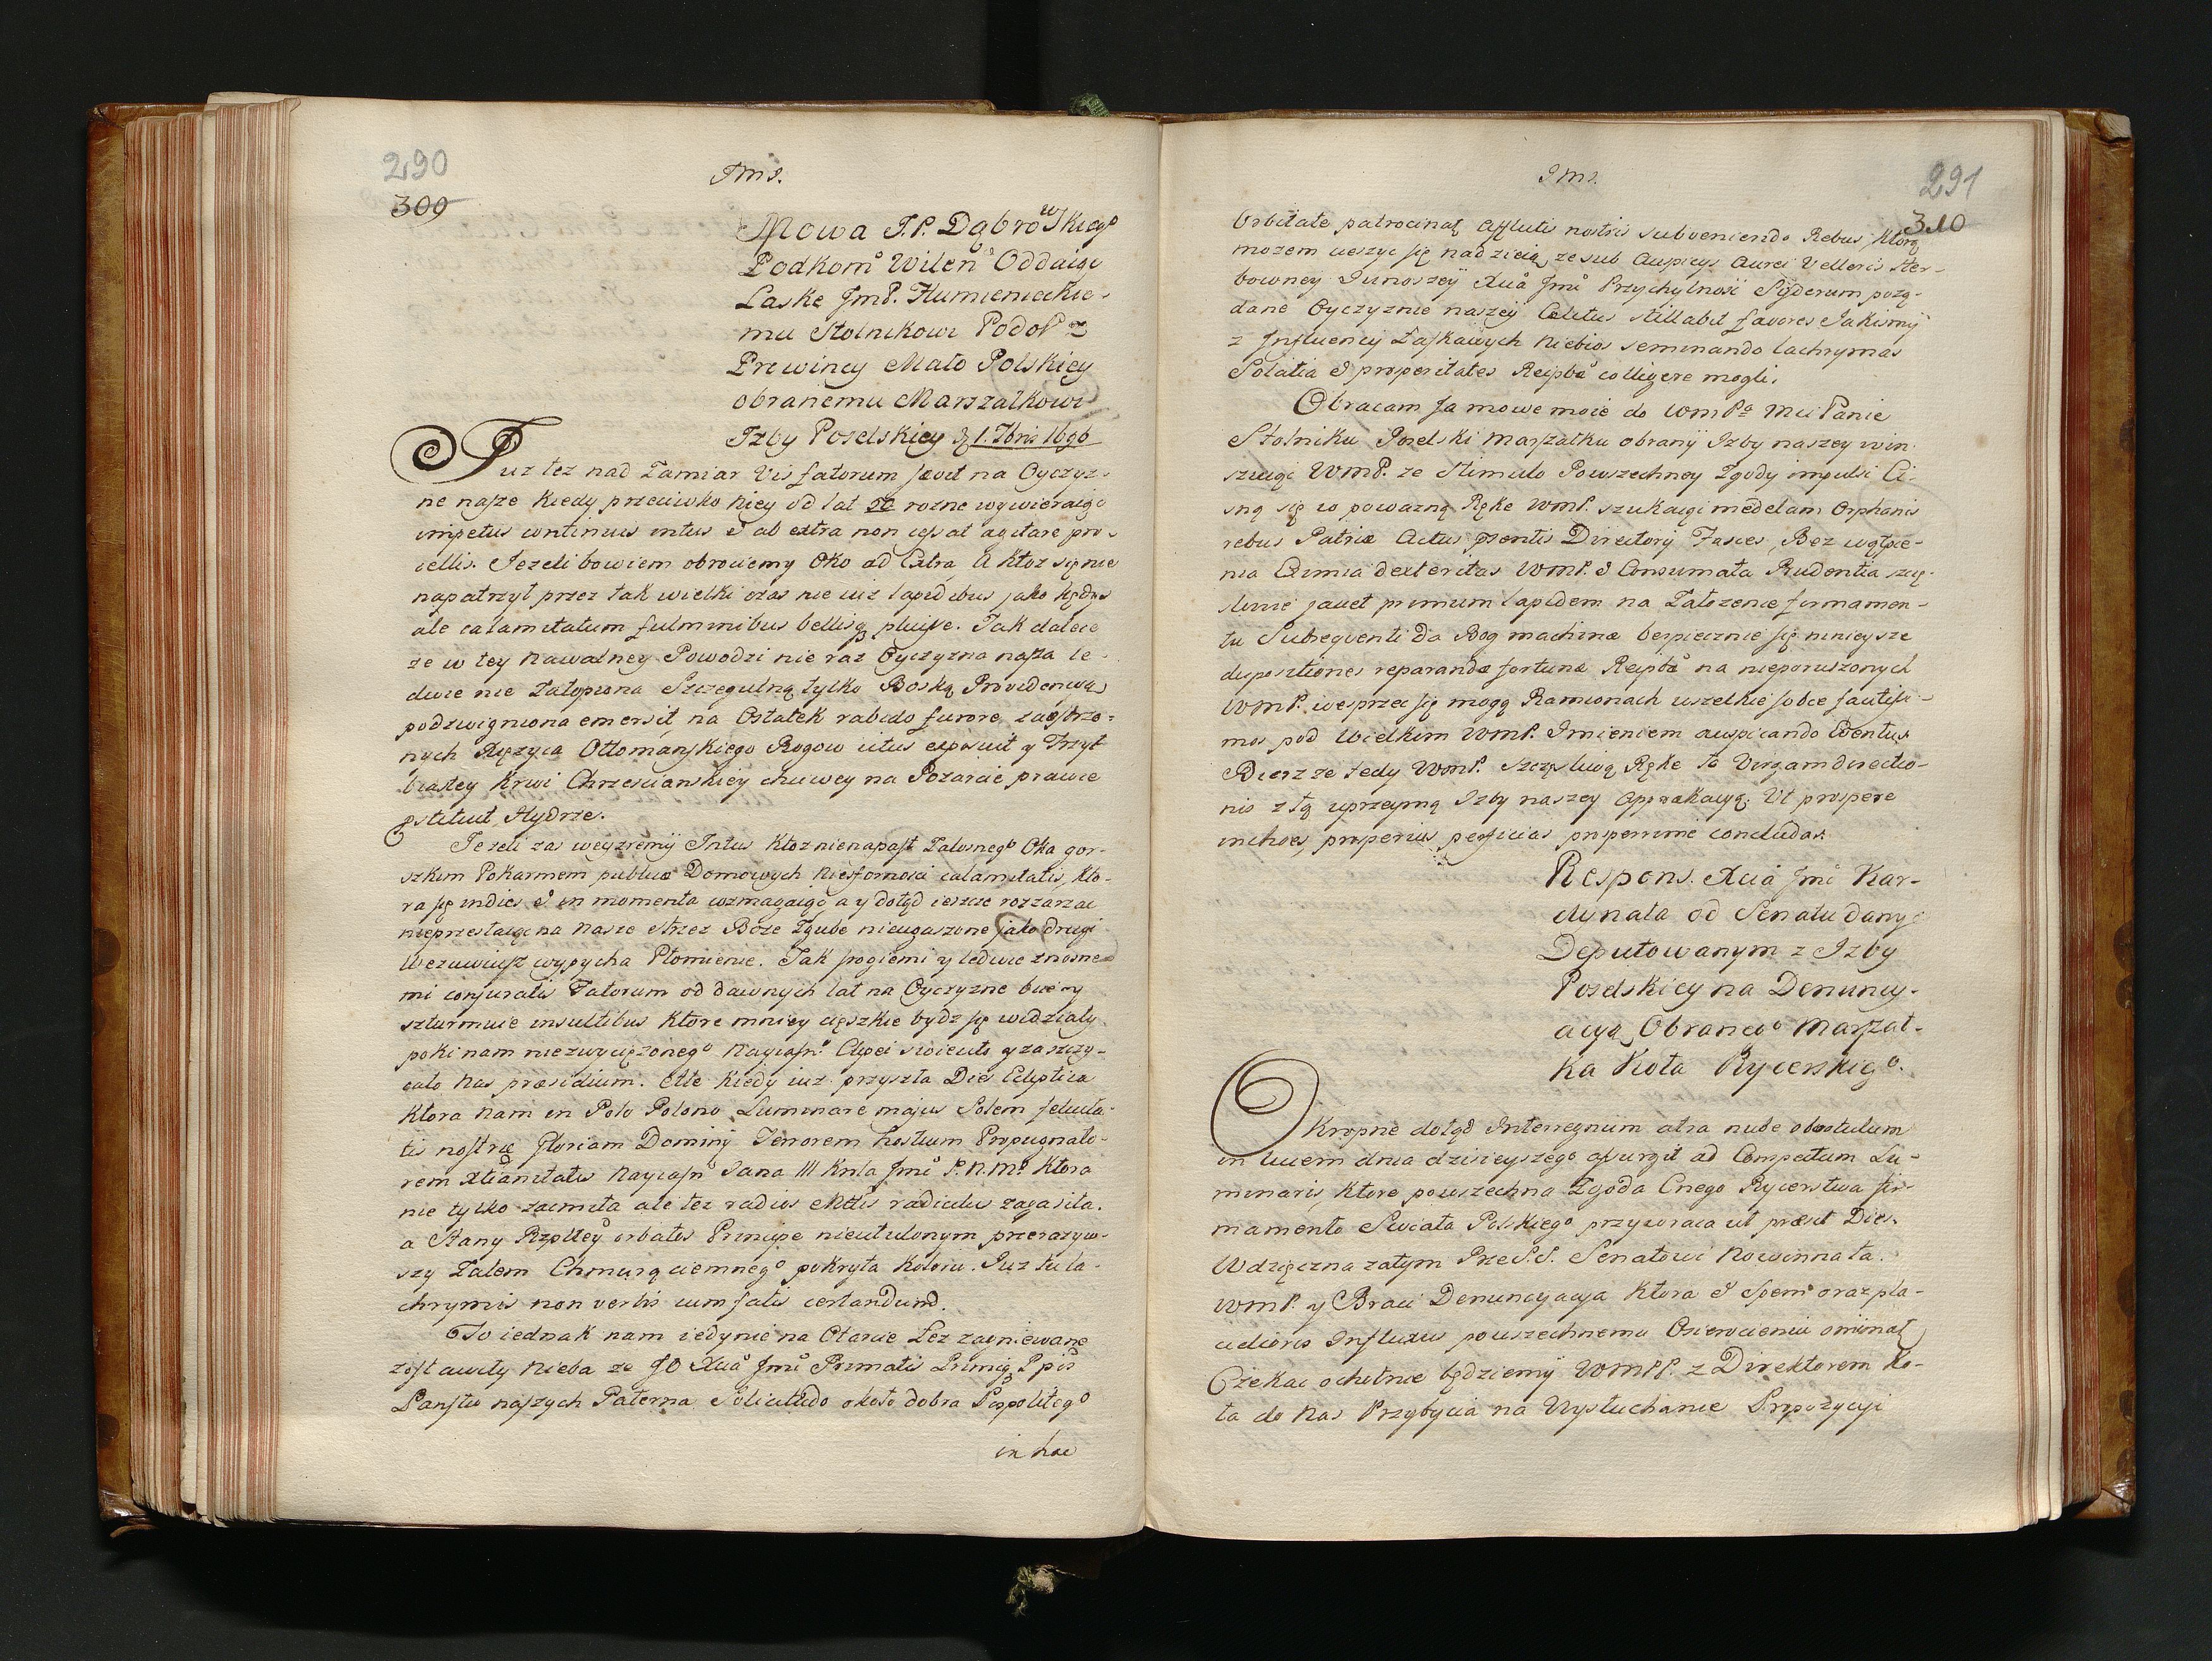 290
309
Mowa J.P. Dąbrowskiego
Podkom° Wilen° Oddaiąc
Laske JmP. Humienieckie-
mu Stolnikowi Podol z
Prowincy Mało Polskiey
obranemu Marszałkowi
Izby Poselskiey d 1. 7bris 1696
Juz tez nad Zamiar Vis fatorum sævit na Oyczyz-
ne nasze kiedy przeciwko niey od lat rozne wywieraiąc
impetus continuis intus & ab extra non cessat agitare pro-
cellis. Jezeli bowiem obrociemy Oko ad Extra, A ktoz się nie
napatrzył przez tak wielki czas nie iuz lapidibus jako kędys
ale calamitatum fulminibus bellisq pluisse. Tak dalece
ze w tey nawalney Powodzi nie raz Oyczyzna nasza le-
dwie nie Zatopiona Szczegulną tylko Boską Providencyą
podzwigniona emersit, na Ostatek rabido furore zaostrzo-
nych Xięzyca Ottomanskiego Rogow ictus exposuit y Trzyk
Krwi Chrzescianskiey chciwey na Pozarcie prawie
pstituit Hydrze.
Jezeli zas weyzremy Intus Ktoz nienapasł Zalosneg° Oka gor-
szkim Pokarmem publicæ Domowych niesfornosci calamitatis, kto-
ra się indies & in momenta wzmagaiąc a y dotąd ieszcze rozzarzac
nieprzestaiąc na nasze strzez Boze Zgube nieugaszone jako drugi
Wezuwiusz wypycha Płomienie. Tak srogiemi y ledwie znosne-
mi conjuratis Fatorum od dawnych lat na Oyczyzne biie y
szturmuie insultibus Ktore mniey cięszkie bydz się widziały
poki nam niezwyciężoneg° Nayiasn° Clipei swieciło y zaszczy-
cało nas præsidium. Ale kiedy iuz przyszła Dies Ecliptica
Ktora nam in Polo Polono Luminare majus Solem felicita-
tis nostræ Gloriam Dominij Terrorem hostium Propugnato-
rem Xtianitatis Nayiasn° Jana III Krola Jm° P.N.M° Ktora
nie tylko zacmiła ale tez radios radicitus zagasiła.
a Stany Rzpltey orbatos Principe nieutulonym przerazyw-
szy Zalem Chmurą ciemneg° pokryła koloru. Juz tu la-
chrymis non verbis cum fatis certandum.
To iednak nam iedynie na Otarcie Łez zagniewane
zostawiły nieba ze JO Xcia Jm° Primatis
Panstw naszych Paterna Solicitudo około dobra Pospoliteg°
in hac
291
310
Orbitate patrocinat afflictis nostris subveniendo Rebus, Ktorą
mozem cieszyc się nadzieią, ze sub auspicys Aurei Velleris Her-
bowney Junoszy Xcia Jm° Przychylnosc Syderum pozą-
dane Oyczyznie naszey Celitus stillabit favores Jakismy
z Influency Łaskawych niebios seminando lachrymas
Solatia & prosperitates Reipbæ colligere mogli.
Obracam Ja mowe moie do WmPa Mci Panie
Stolniku Poselski Marszałku obrany Izby naszey win-
szuiąc WMP. ze stimulo Powszechney Zgody impulsi Ci-
sną się w powazną Rękę WMP. szukaiąc medelam Orphanis
rebus Patriæ Actus psentis Directorij Fasces, Bez wątpie-
nia Eximia dexteritas WMP. & Consumata Prudentia szczę-
sliwie jaciet primum lapidem na Załozenie firmamen-
tu Subsequenti da Bog machinæ bespiecznie się mnieysze
dispositiones reparandæ fortunæ Reipbæ na nieporuszonych
WMP. wesprzec się mogą Ramionach wszelkie sobie faustissi-
mos pod Wielkim WMP. Imieniem auspicando Eventus
Bierz ze tedy WMP. szczęsliwą Ręke tę Virgam directio-
nis z tą uprzeymą Izby naszey apprekacyą: Ut prospere
inchoes, prosperius perficias prosperrime concludas.
Respons. Xcia Jm° Kar-
dynała od Senatu dany
Deputowanym z Izby
Poselskiey na Denuncy-
acyą Obranego Marszał-
ka Koła Rycerskiego.
Okropne dotąd Interregnum atra nube obvolutum
in lucem dnia dzisieyszego assurgit ad Compectum Lu-
minaris, Ktore powszechna Zgoda Cnego Rycerstwa fir-
mamento Swiata Polskiego przywraca ut præsit Diei.
Wdzięczna zatym Prze S.S. Senatowi Nowinna ta
WMP. y Braci Denuncyacya Ktora & Spem oraz pla-
cidioris Influxus powszechnemu Osieroceniu ominat
Czekac ochotnie będziemy WMPP. z Direktorem Ko-
ła do nas Przybycia na Wysłuchanie Propozycyi